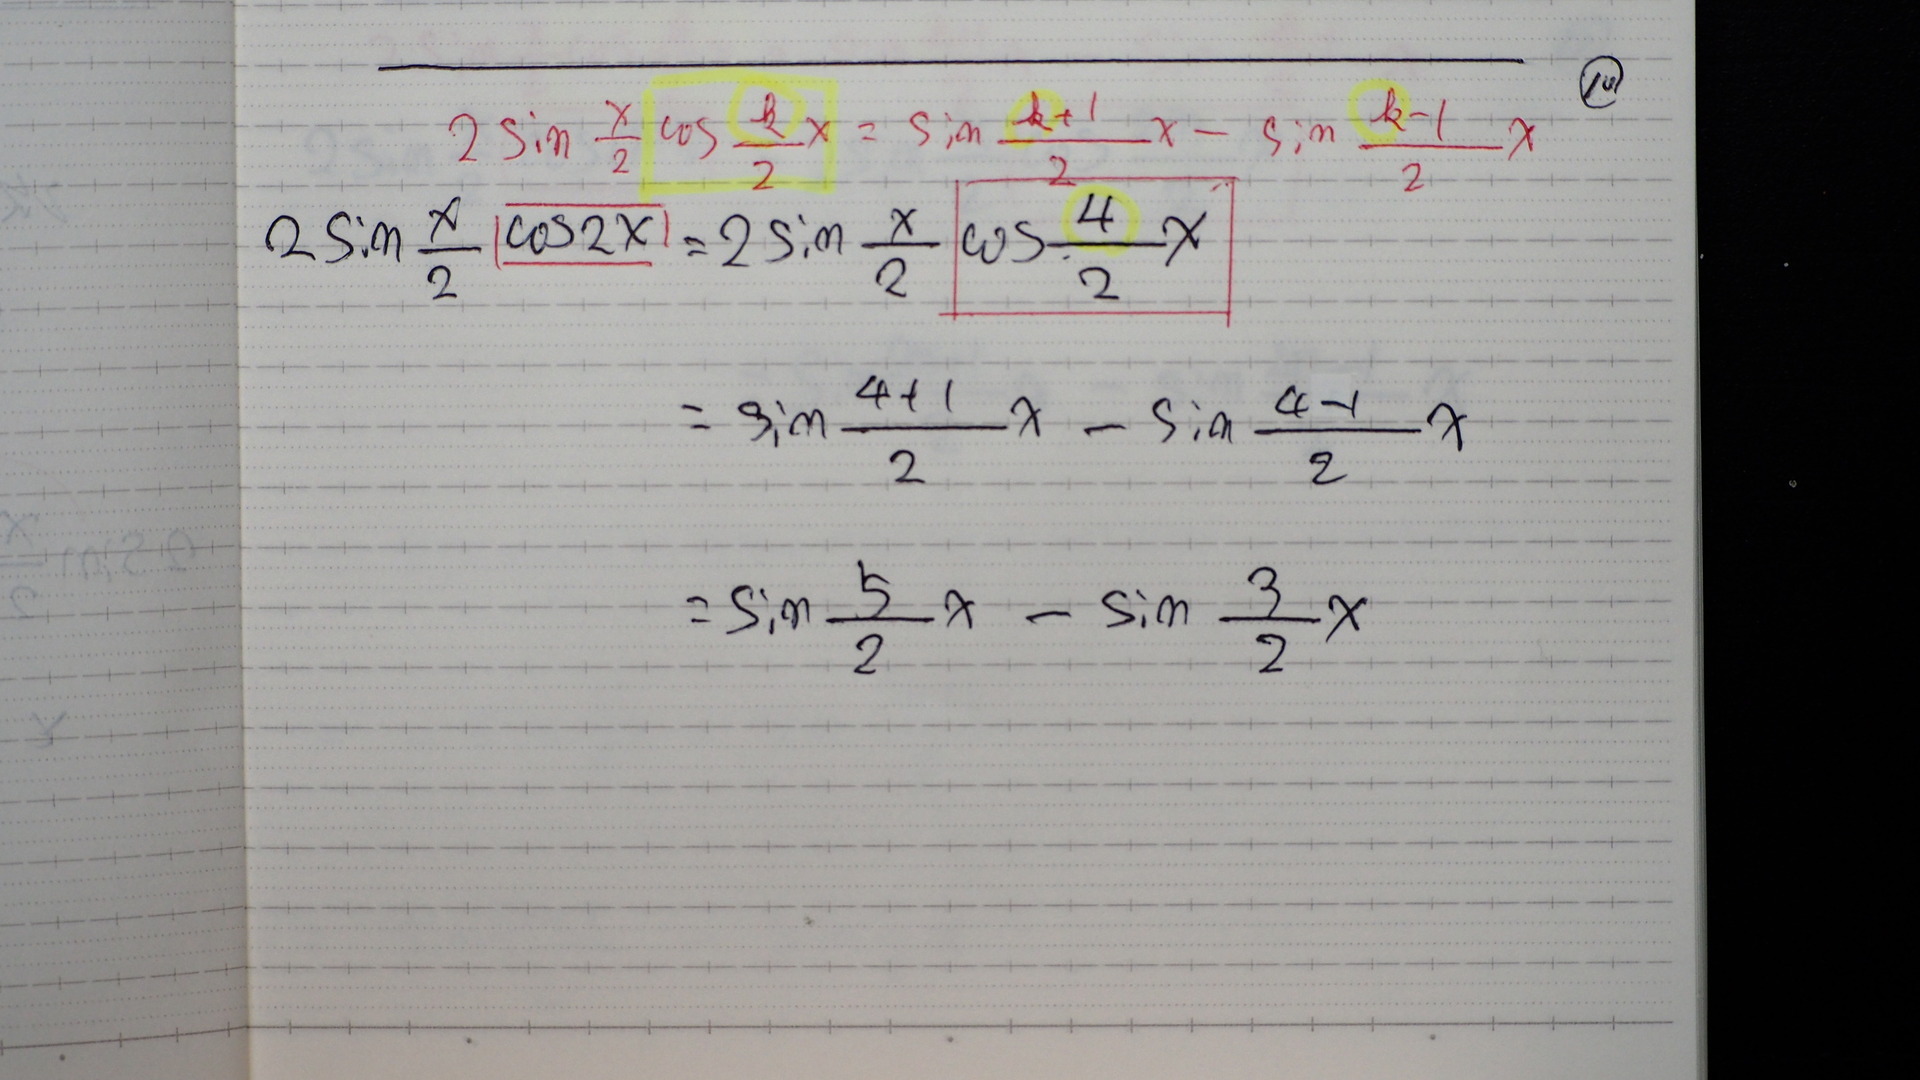 2 sin x/2 cos k/2 x = sin k+1/2 x - sin k-1/2 x
2 sin x/2 cos 2x = 2 sin x/2 cos 4/2 x
= sin 4+1/2 x - sin 4-1/2 x
= sin 5/2 x - sin 3/2 x